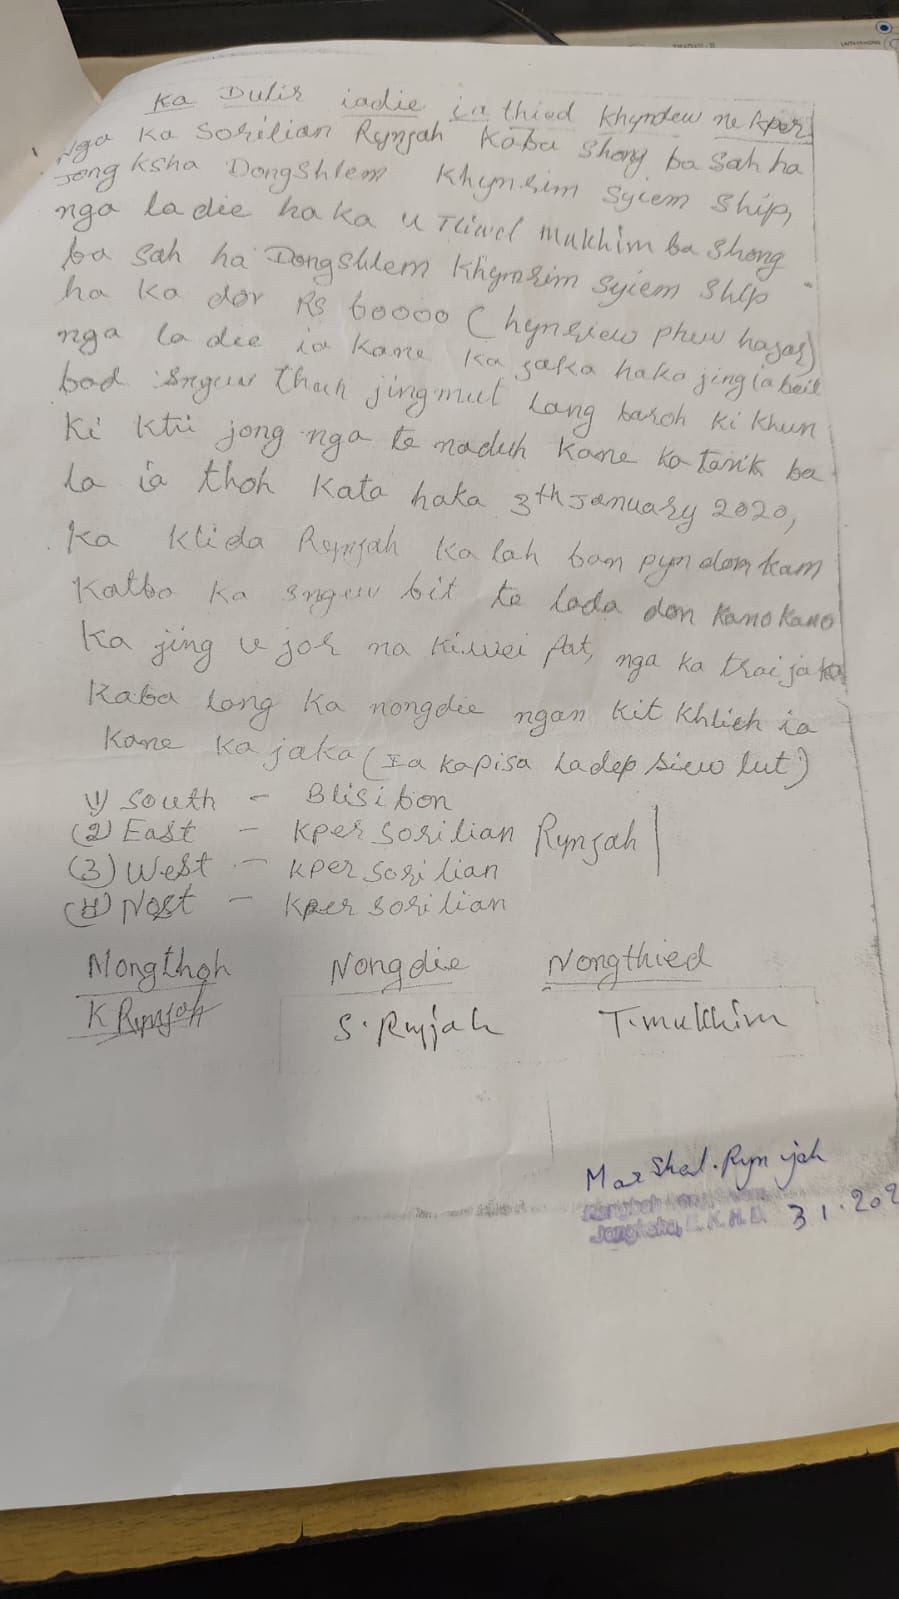 Ka Dulir iadie ia thied Khyndew ne kper
Nga Ka Sorilian Rynjah Kaba Shong ba Sah ha
Jongksha Dongshlem Khynrim Syiem Ship,
nga la die ha ka u Tliwel Mukhim ba Shong
ba Sah ha Dongshlem Khynrim Syiem Ship
ha ka dor Rs 60000 (hynriew phew hajar)
nga la die ia kane ka jaka haka jingiabeit
bad Snguw thuh jingmut lang baroh ki khun
Ki Ktü jong nga te naduh Kane ka tarik ba
la ia thoh Kata haka 3th January 2020,
Ka Klida Rynjah Ka lah ban pyndonkam
Katba Ka Snguw bit te lada don Kano Kano
Ka jing ujor na Kiwei Pat, nga ka trai jaka
Kaba long Ka nongdie ngan Kit Khlieh ia
Kane Ka jaka (Ia Kapisa Ladep Siew lut)
1) South - Blisibon
(2) East - Kper Sorilian Rynjah
(3) West - Kper Sorilian
(4) Nost - Kper Sorilian
Nongthoh Nongdie Nongthied
K Rynjah S. Rynjah T. mukhim
Marshal. Rynjah
Jongksha, E.K.H.D. 3 1.202